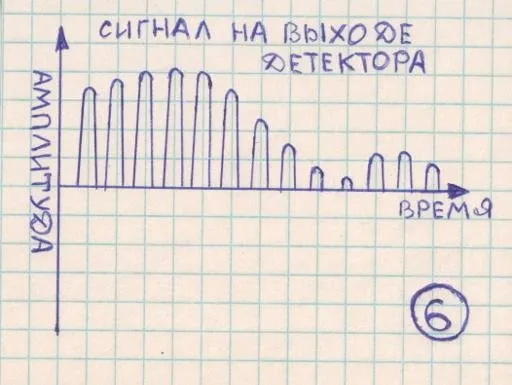 СИГНАЛ НА ВЫХОДЕ
ДЕТЕКТОРА
АМПЛИТУДА
ВРЕМЯ
6